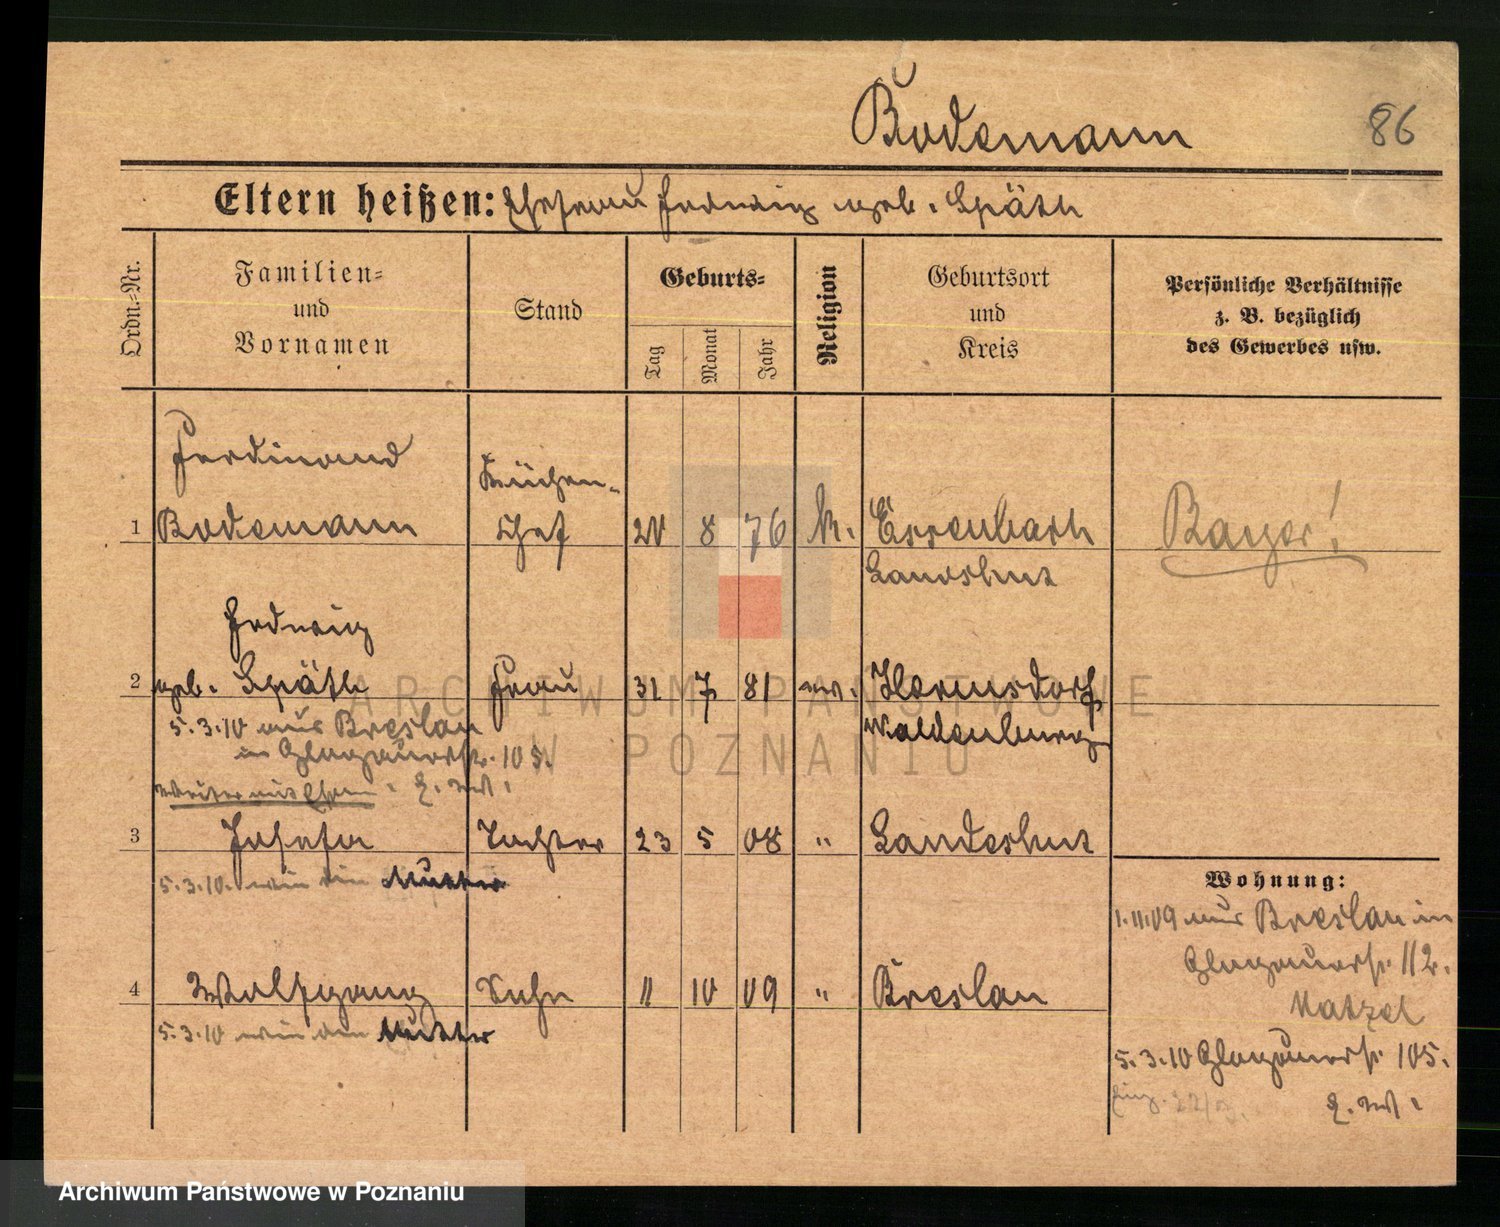 Bodemann
86
Eltern heißen: Ehefrau Hedwig geb. Späth
Ordn.=Nr.
Familien=
und
Vornamen
Stand
Geburts=
Tag
Monat
Jahr
Religion
Geburtsort
und
Kreis
Persönliche Verhältnisse
z. B. bezüglich
des Gewerbes usw.
Ferdinand
Küchen-
1 Bodemann Chef 20 8 76 k. Essenbach Bayer!
Landshut
Hedwig
2 geb. Späth Frau 31 7 81 ev. Hermsdorf
Waldenburg
5.3.10 aus Breslau
in Glogauerstr. 105.
3 Josefa Tochter 23 5 08 " Landeshut
5.3.10. wie die Mutter
4 Wolfgang Sohn 11 10 09 " Breslau
5.3.10 wie die Mutter
Wohnung:
1.11.09 aus Breslau in
Glogauerstr. 112.
Matzel
5.3.10 Glogauerstr. 105.
ARCHIWUM PAŃSTWOWE
W POZNANIU
Archiwum Państwowe w Poznaniu